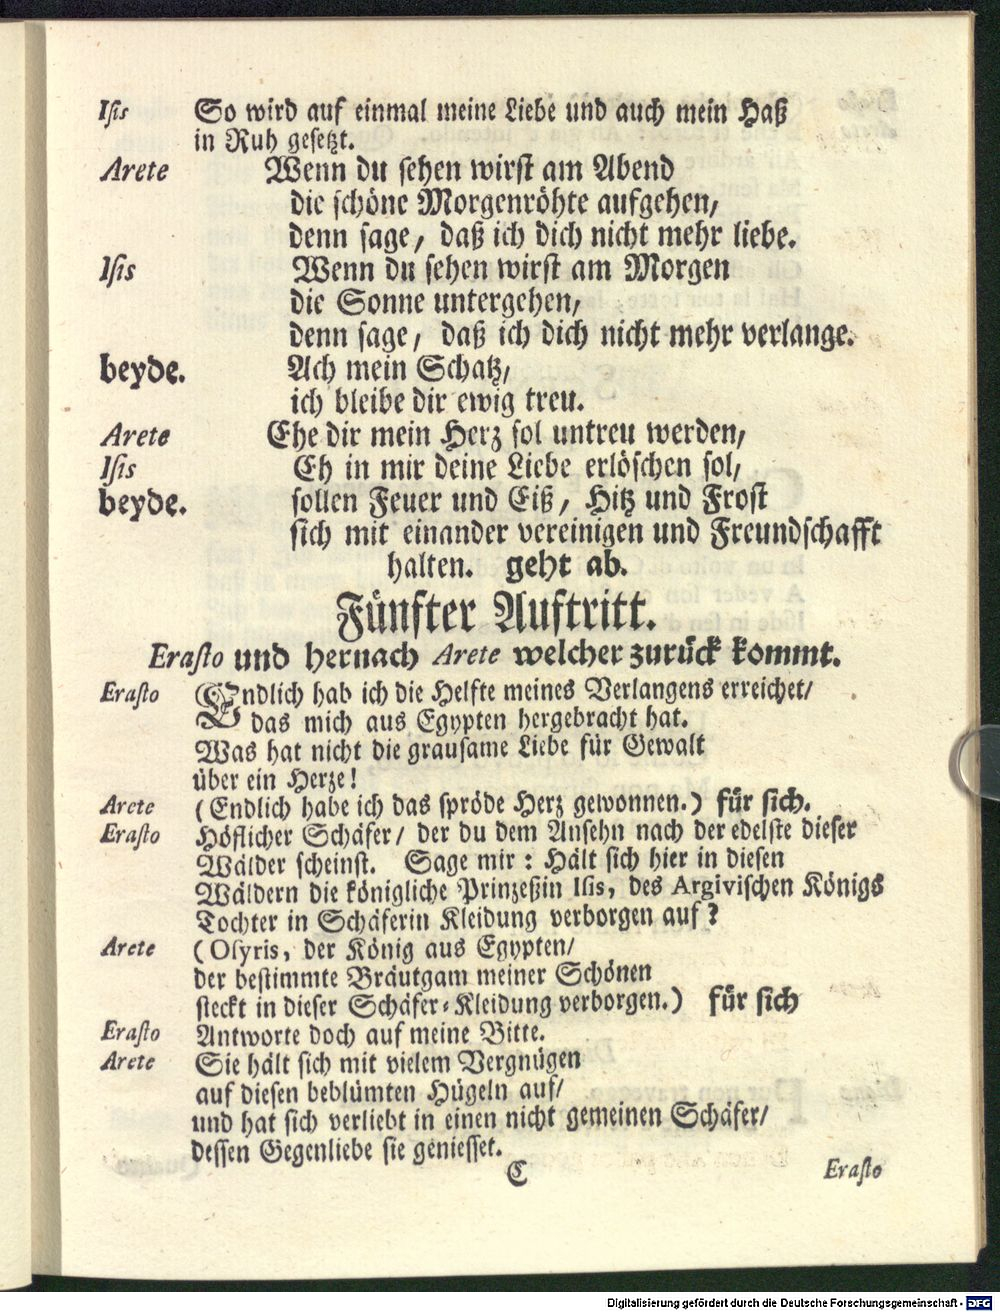 Isis So wird auf einmal meine Liebe und auch mein Haß
in Ruh gesetzt.
Arete Wenn du sehen wirst am Abend
die schöne Morgenröhte aufgehen,
denn sage, daß ich dich nicht mehr liebe.
Isis Wenn du sehen wirst am Morgen
die Sonne untergehen,
denn sage, daß ich dich nicht mehr verlange.
beyde. Ach mein Schatz,
ich bleibe dir ewig treu.
Arete Ehe dir mein Herz sol untreu werden,
Isis Eh in mir deine Liebe erlöschen sol,
beyde. sollen Feuer und Eiß, Hitz und Frost
sich mit einander vereinigen und Freundschafft
halten. geht ab.
Fünfter Auftritt.
Erasto und hernach Arete welcher zurück kommt.
Erasto Endlich hab ich die Helfte meines Verlangens erreichet/
das mich aus Egypten hergebracht hat.
Was hat nicht die grausame Liebe für Gewalt
über ein Herze!
Arete (Endlich habe ich das spröde Herz gewonnen.) für sich.
Erasto Höflicher Schäfer/ der du dem Ansehn nach der edelste dieser
Wälder scheinst. Sage mir: Hält sich hier in diesen
Wäldern die königliche Prinzeßin Isis, des Argivischen Königs
Tochter in Schäferin Kleidung verborgen auf?
Arete (Osyris, der König aus Egypten/
der bestimmte Bräutgam meiner Schönen
steckt in dieser Schäfer-Kleidung verborgen.) für sich
Erasto Antworte doch auf meine Bitte.
Arete Sie hält sich mit vielem Vergnügen
auf diesen beblümten Hügeln auf/
und hat sich verliebt in einen nicht gemeinen Schäfer/
dessen Gegenliebe sie geniesset.
C Erasto
Digitalisierung gefördert durch die Deutsche Forschungsgemeinschaft - DFG